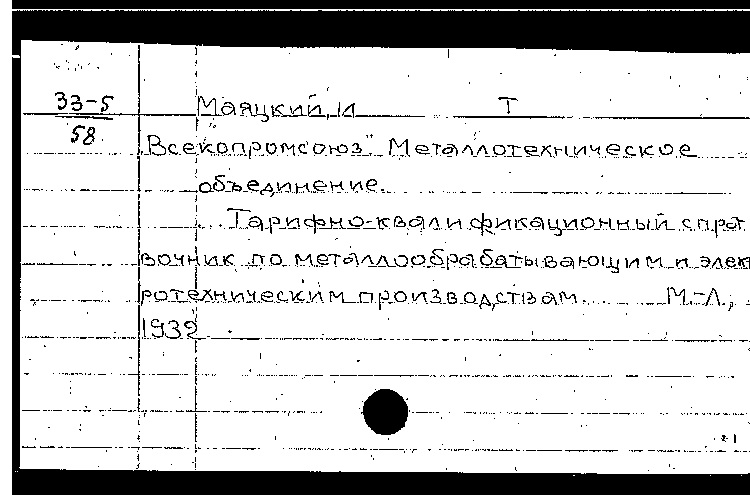 33-5 Маяцкий, И Т
58
„Всекопромсоюз" Металлотехническое
объединение.
Тарифно-квалификационный спра
вочник по металлообрабатывающим и элект
ротехническим производствам. М.-Л.,
1932